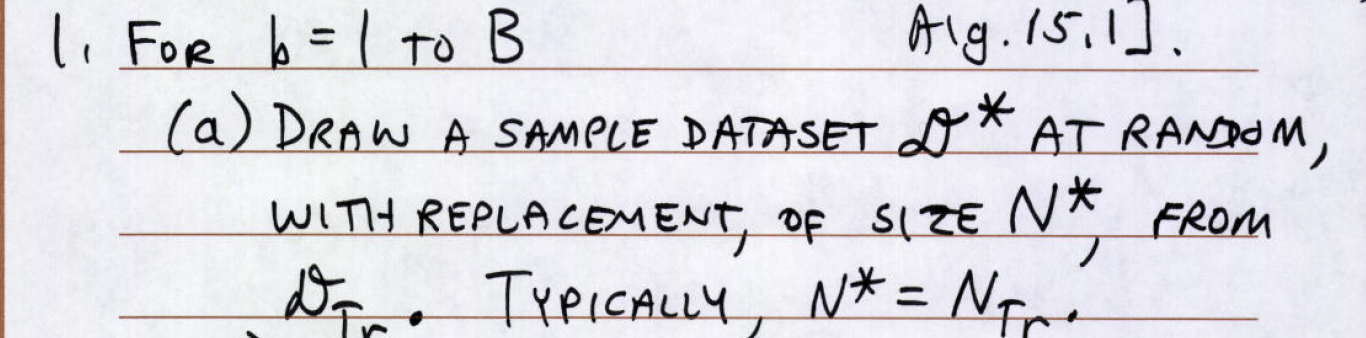 1. FOR b = 1 TO B Alg. 15.1].
(a) DRAW A SAMPLE DATASET 𝒟* AT RANDOM,
WITH REPLACEMENT, OF SIZE N*, FROM
𝒟_Tr. TYPICALLY, N* = N_Tr.